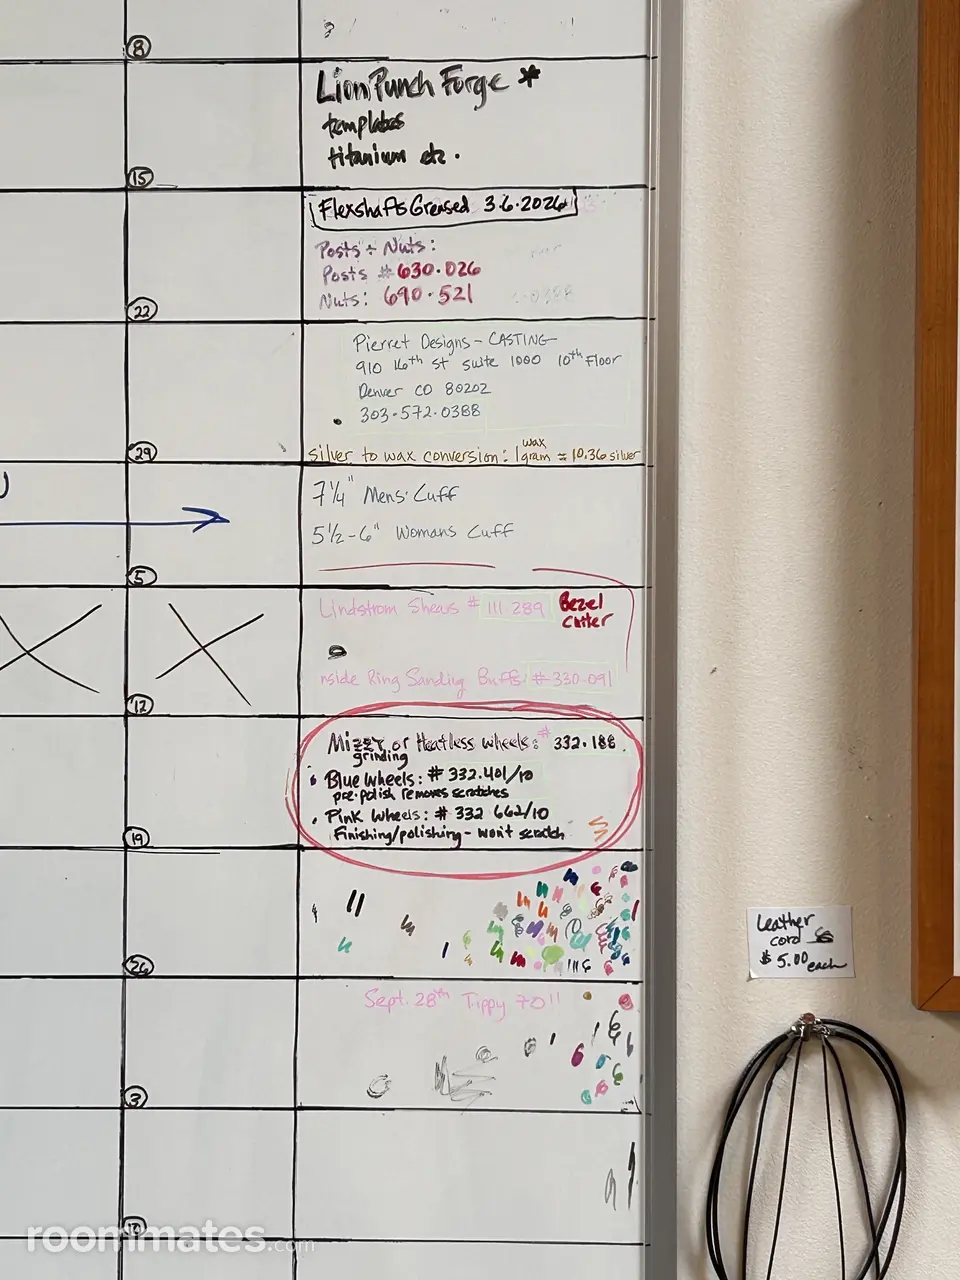 8
Lion Punch Forge *
templates
titanium etc.
15
Flexshafts Greased 3.6.2026
Posts + Nuts:
Posts # 630.026
Nuts: 690.521
22
Pierret Designs - CASTING
910 16th St Suite 1000 10th Floor
Denver CO 80202
303.572.0388
29
silver to wax conversion: 1 wax gram = 10.36 silver
7 1/4" Mens Cuff
5 1/2-6" Womans Cuff
5
Lindstrom Shears # 111.289 Bezel
Cutter
nside Ring Sanding Buffs # 330.091
12
Mizzy or Heatless wheels: # 332.188
grinding
• Blue Wheels: # 332.401/10
pre-polish removes scratches
• Pink Wheels: # 332 662/10
Finishing/polishing - won't scratch
19
Leather
cord
$5.00 each
26
Sept. 28th Tippy 70!!
3
10
roommates.com